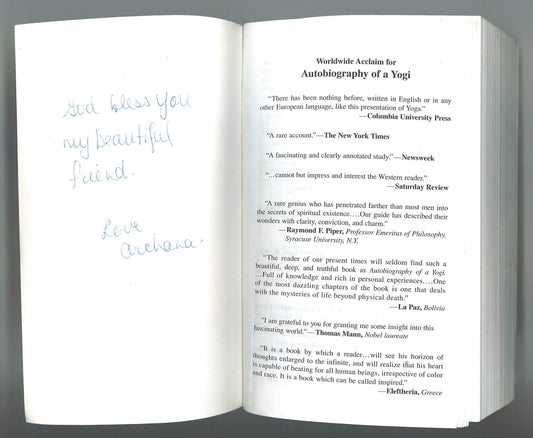 God bless you
my beautiful
friend.
Love
Archana.
Worldwide Acclaim for
Autobiography of a Yogi
"There has been nothing before, written in English or in any
other European language, like this presentation of Yoga."
—Columbia University Press
"A rare account."—The New York Times
"A fascinating and clearly annotated study."—Newsweek
"...cannot but impress and interest the Western reader."
—Saturday Review
"A rare genius who has penetrated farther than most men into
the secrets of spiritual existence....Our guide has described their
wonders with clarity, conviction, and charm."
—Raymond F. Piper, Professor Emeritus of Philosophy,
Syracuse University, N.Y.
"The reader of our present times will seldom find such a
beautiful, deep, and truthful book as Autobiography of a Yogi.
....Full of knowledge and rich in personal experiences....One
of the most dazzling chapters of the book is one that deals
with the mysteries of life beyond physical death."
—La Paz, Bolivia
"I am grateful to you for granting me some insight into this
fascinating world."—Thomas Mann, Nobel laureate
"It is a book by which a reader...will see his horizon of
thoughts enlarged to the infinite, and will realize that his heart
is capable of beating for all human beings, irrespective of color
and race. It is a book which can be called inspired."
—Eleftheria, Greece